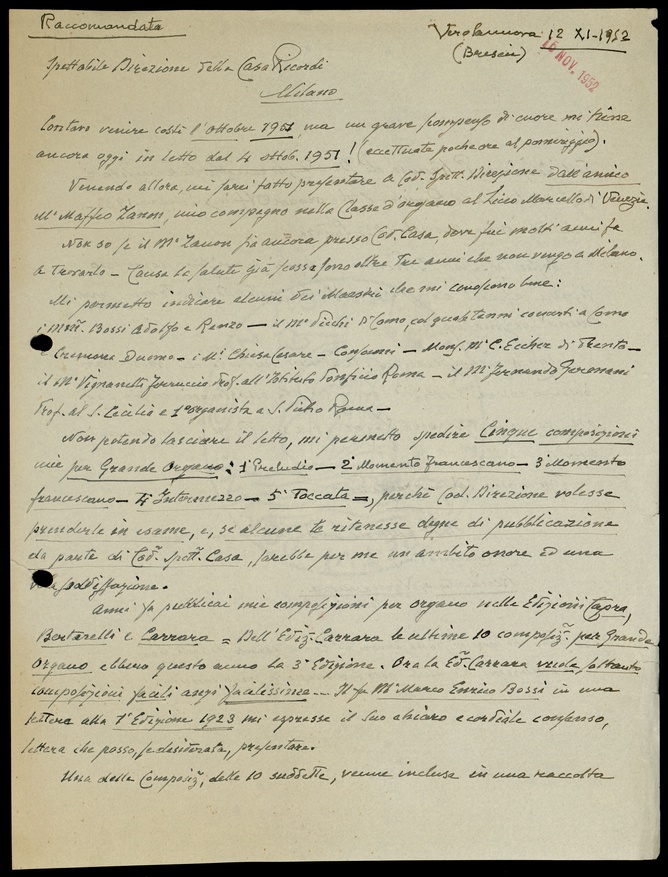 Raccomandata
Verolanuova 12 XI-1952
(Brescia)
16 NOV. 1952
Spettabile Direzione della Casa Ricordi
Milano
Contavo venire costì l'ottobre 1951, ma un grave scompenso di cuore mi tiene
ancora oggi in letto dal 4 ottob. 1951! (eccettuate poche ore al pomeriggio).
Venendo allora, mi sarei fatto presentare a Cod. Spett. Direzione dall'amico
Mº Maffeo Zanon, mio compagno nella Classe d'organo al Liceo Marcello di Venezia.
Non so se il Mº Zanon sia ancora presso Cod. Casa, dove fui molti anni fa
a trovarlo – Causa la salute già scossa sono oltre tre anni che non vengo a Milano.
Mi permetto indicare alcuni dei Maestri che mi conoscono bene:
i Mri Bossi Adolfo e Renzo – il Mº Picchi di Como, col quale tenni concerti a Como
e Cremona Duomo – i Mi Chiesa Cesare – – Mons. Mº C. Eccher di Trento –
il Mº Vignanelli Ferruccio Prof. all'Istituto Pontificio Roma – il Mº Fernando Germani
Prof. al S. Cecilia e 1º organista a S. Pietro Roma –
Non potendo lasciare il letto, mi permetto spedire Cinque composizioni
mie per Grande Organo: 1º Preludio – 2º Momento Francescano – 3º Momento
francescano – 4º Intermezzo – 5º Toccata =, perchè Cod. Direzione volesse
prenderle in esame, e, se alcune le ritenesse degne di pubblicazione
da parte di Cod. Spett. Casa, sarebbe per me un ambito onore ed una
soddisfazione.
Anni fa pubblicai mie composizioni per organo nelle Edizioni Capra,
Bertarelli e Carrara = Dell'Ediz. Carrara le ultime 10 composiz. per Grande
Organo ebbero questo anno la 3ª Edizione. Ora la Ed. Carrara vuole soltanto
composizioni facili anzi facilissime – Il fu Mº Marco Enrico Bossi in una
lettera alla 1ª Edizione 1923 mi espresse il suo chiaro e cordiale consenso,
lettera che posso, se desiderata, presentare.
Una delle Composiz., delle 10 suddette, venne inclusa in una raccolta